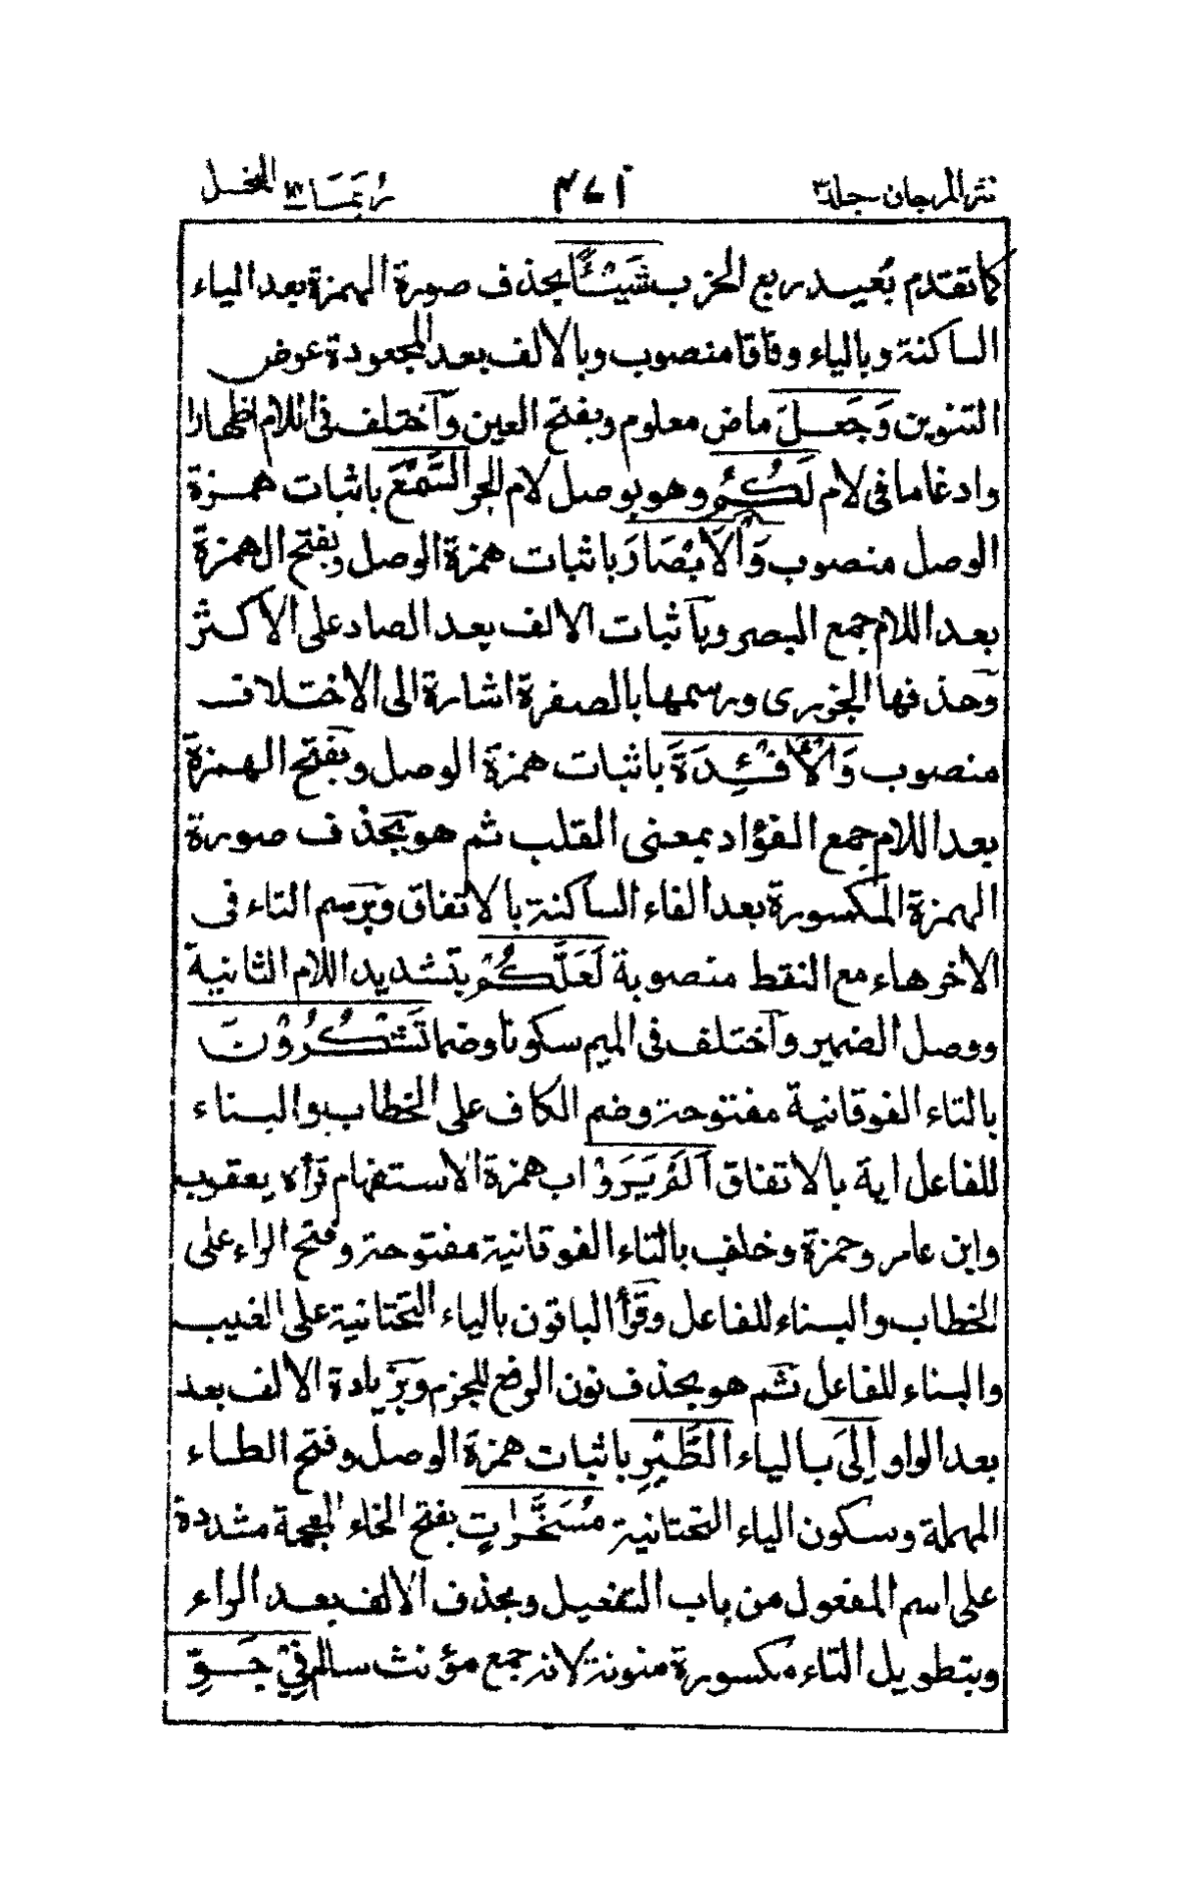 نثر المرجان جلد٣ ٤٦١ ربما١٤ النحل
كما تقدم بُعيد ربع الحزب شَيْـًٔا بحذف صورة الهمزة بعد الياء
الساكنة وبالياء وفاقا منصوب وبالالف بعد المجعودة عوض
التنوين وَجَعَلَ ماض معلوم وبفتح العين وآختلف فى اللام اظهارا
وادغاما فى لام لَكُمُ وهو بوصل لام الجر السَّمْعَ باثبات همزة
الوصل منصوب وَالْاَبْصَارَ باثبات همزة الوصل وبفتح الهمزة
بعد اللام جمع البصر وبآثبات الالف بعد الصاد على الاكثر
وحذفها الجزرى ورسمها بالصفرة اشارة الى الاختلاف
منصوب وَالْاَفْـِٕدَةَ باثبات همزة الوصل وبفتح الهمزة
بعد اللام جمع الفؤاد بمعنى القلب ثم هو بحذف صورة
الهمزة المكسورة بعد الفاء الساكنة بالاتفاق وبرسم التاء فى
الاخر هاء مع النقط منصوبة لَعَلَّكُمْ بتشديد اللام الثانية
ووصل الضمير وآختلف فى الميم سكونا وضما تَشْكُرُوْنَ
بالتاء الفوقانية مفتوحة وضم الكاف على الخطاب والبناء
للفاعل اية بالاتفاق اَلَمْ يَرَوْا بهمزة الاستفهام قرأه يعقوب
وابن عامر وحمزة وخلف بالتاء الفوقانية مفتوحة وفتح الراء على
الخطاب والبناء للفاعل وقرأ الباقون بالياء التحتانية على الغيب
والبناء للفاعل ثم هو بحذف نون الرفع للجزم وبزيادة الالف بعد
بعد الواو اِلَى بالياء الطَّيْرِ باثبات همزة الوصل وفتح الطاء
المهملة وسكون الياء التحتانية مُسَخَّرٰتٍ بفتح الخاء المعجمة مشددة
على اسم المفعول من باب التفعيل وبحذف الالف بعد الراء
وبتطويل التاء مكسورة منونة لانه جمع مؤنث سالم فِيْ جَوِّ